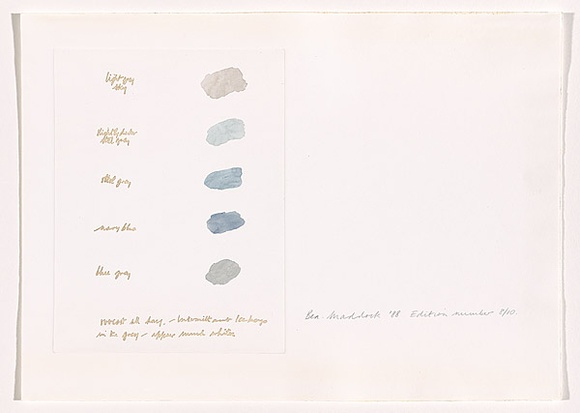 light grey
sky
slightly darker
blue grey
steel grey
navy blue
blue grey
all day. -
in the grey - appear much whiter
Bea Maddock '88 Edition number 5/10.